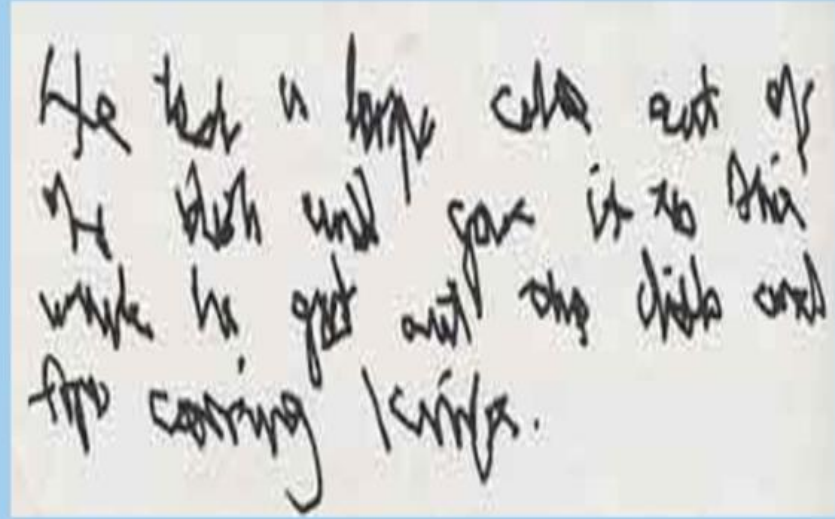 He took a large cake out of
the dish and gave it to
while he got out the dish and
the carving knife.